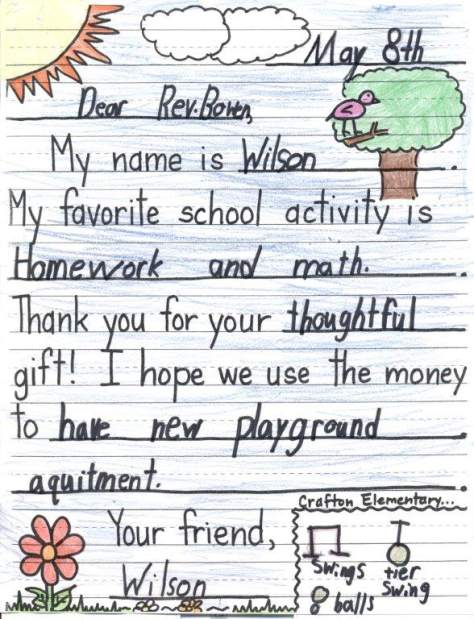 May 8th
Dear Rev. Bowen,
My name is Wilson.
My favorite school activity is
Homework and math. .
Thank you for your thoughtful
gift! I hope we use the money
to have new playground
aquitment. .
Your friend,
Wilson
Crafton Elementary...
Swings
tier
Swing
balls